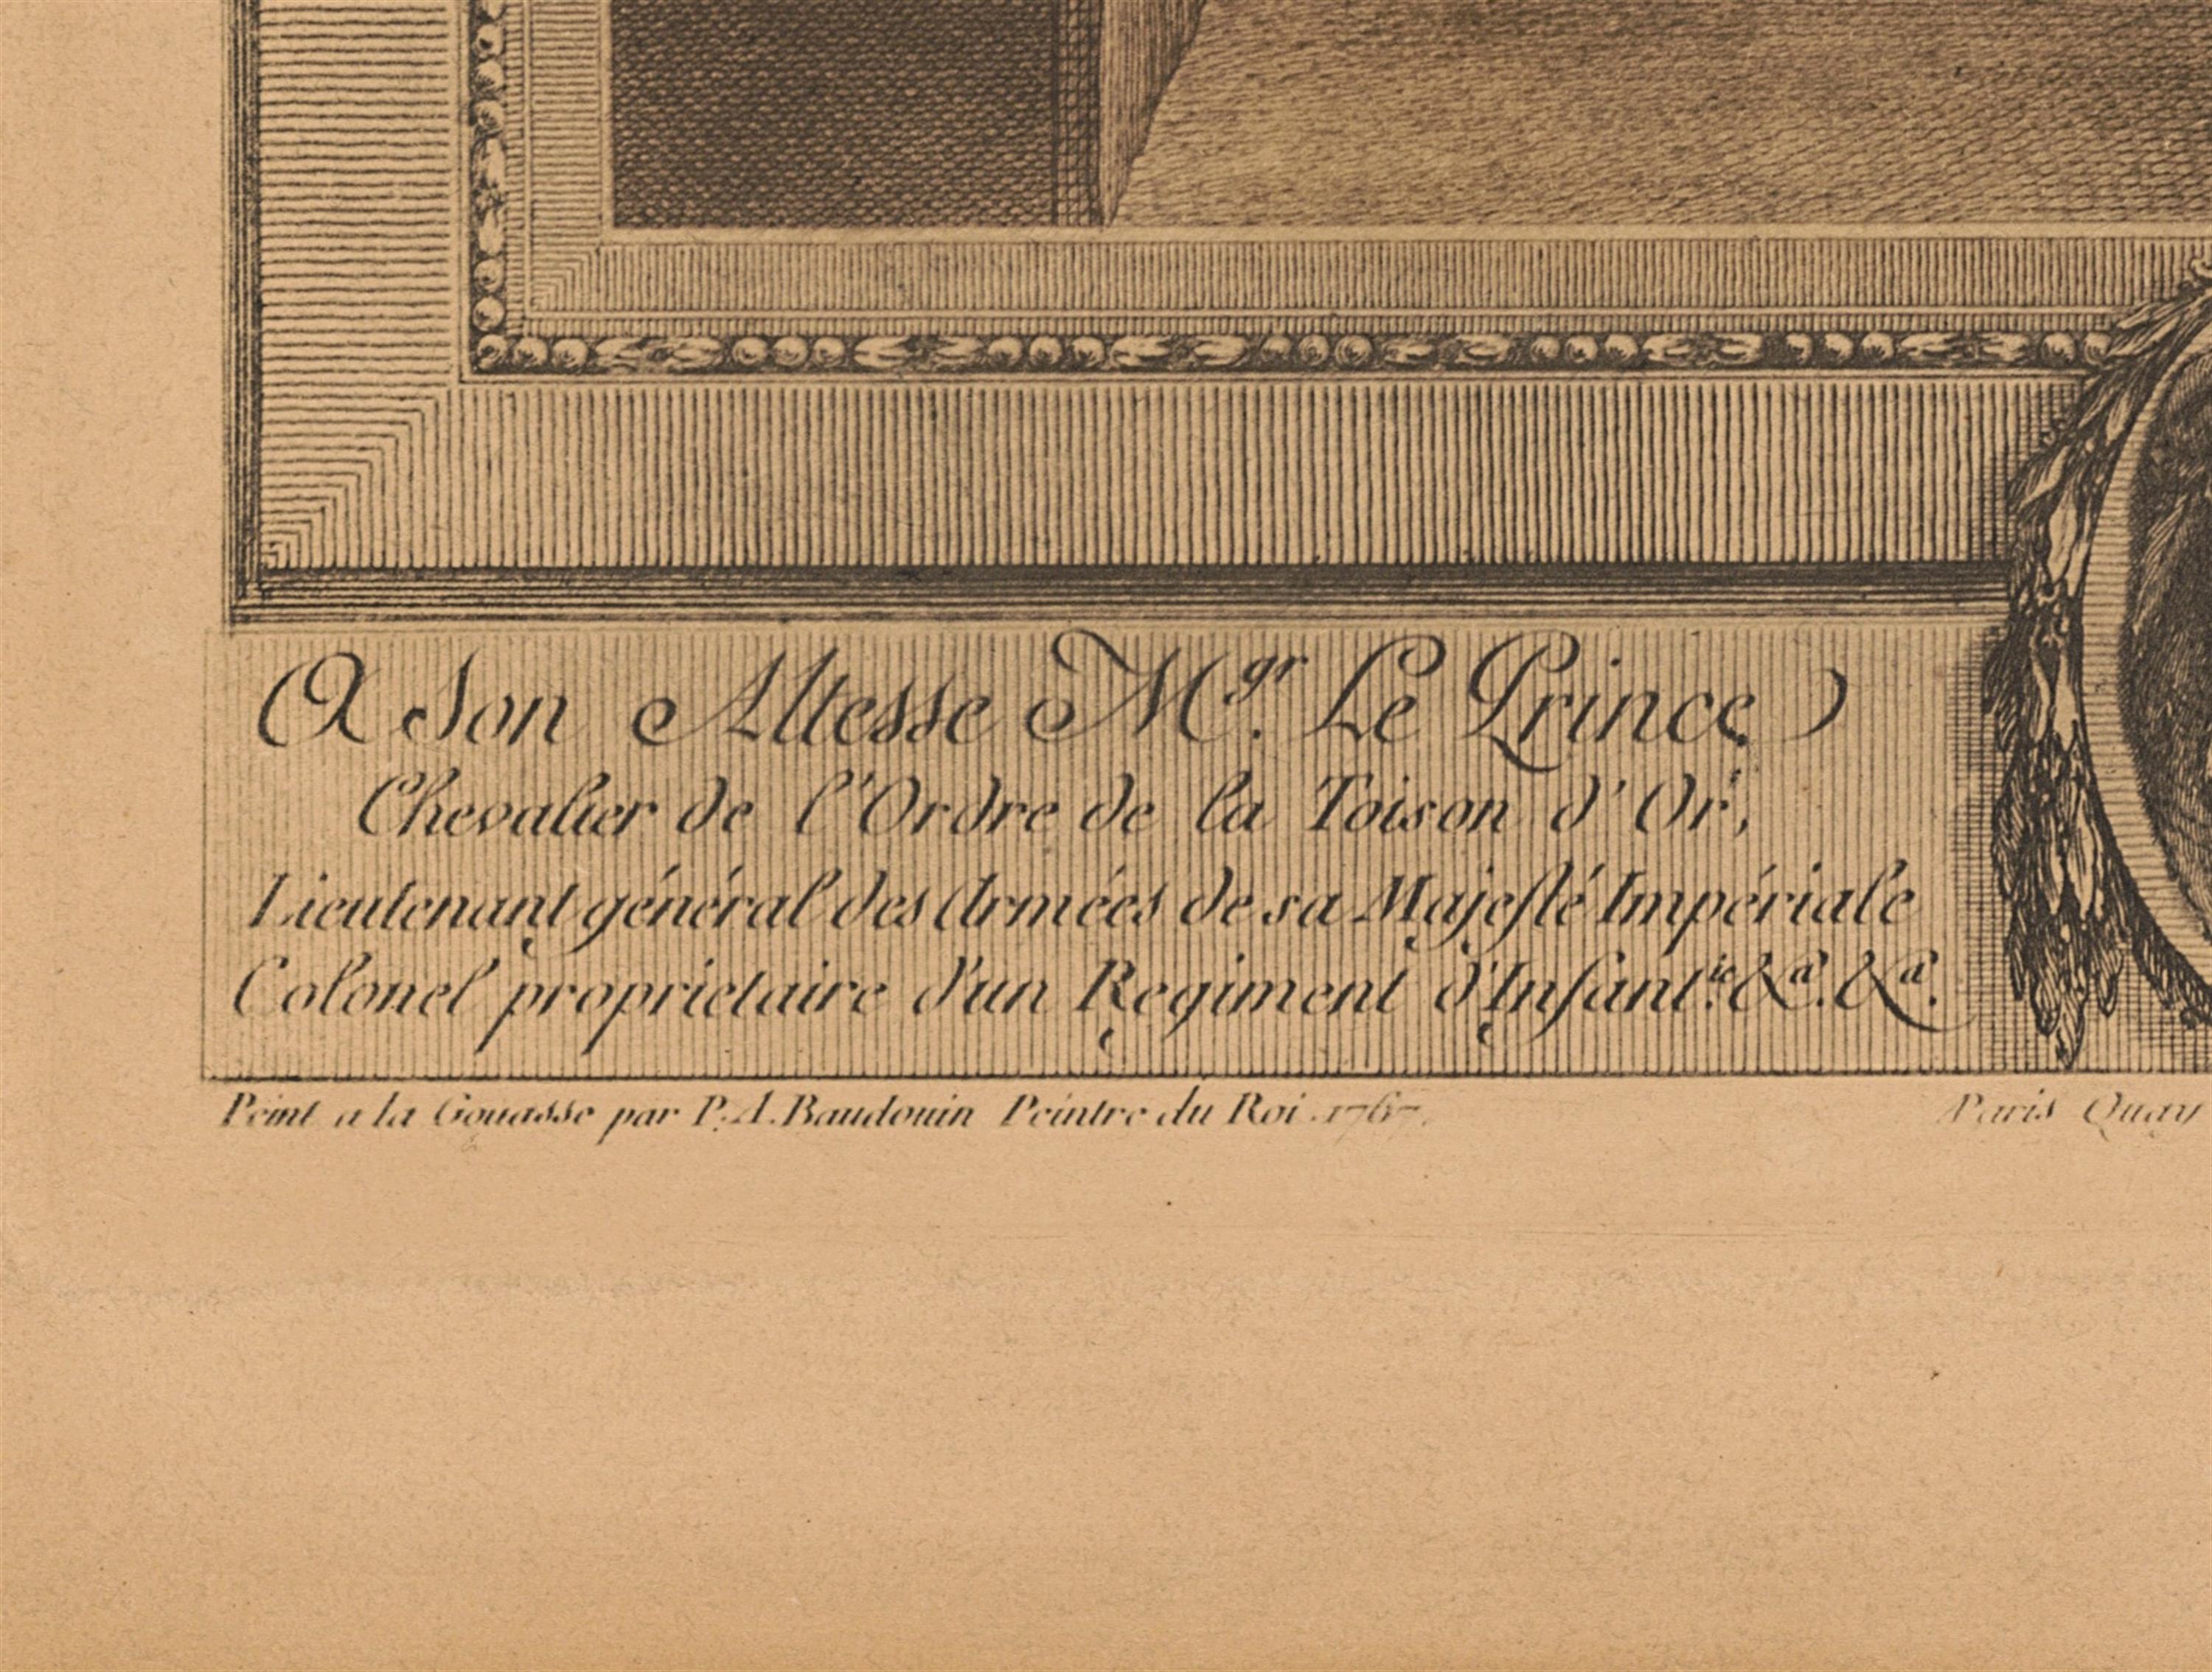 A Son Altesse M.gr Le Prince
Chevalier de l'Ordre de la Toison d'Or,
Lieutenant général des Armées de sa Majesté Impériale
Colonel proprietaire d'un Regiment d'Infant.ie &.a &.a
Peint a la Gouasse par P. A. Baudouin Peintre du Roi 1767. Paris Quay